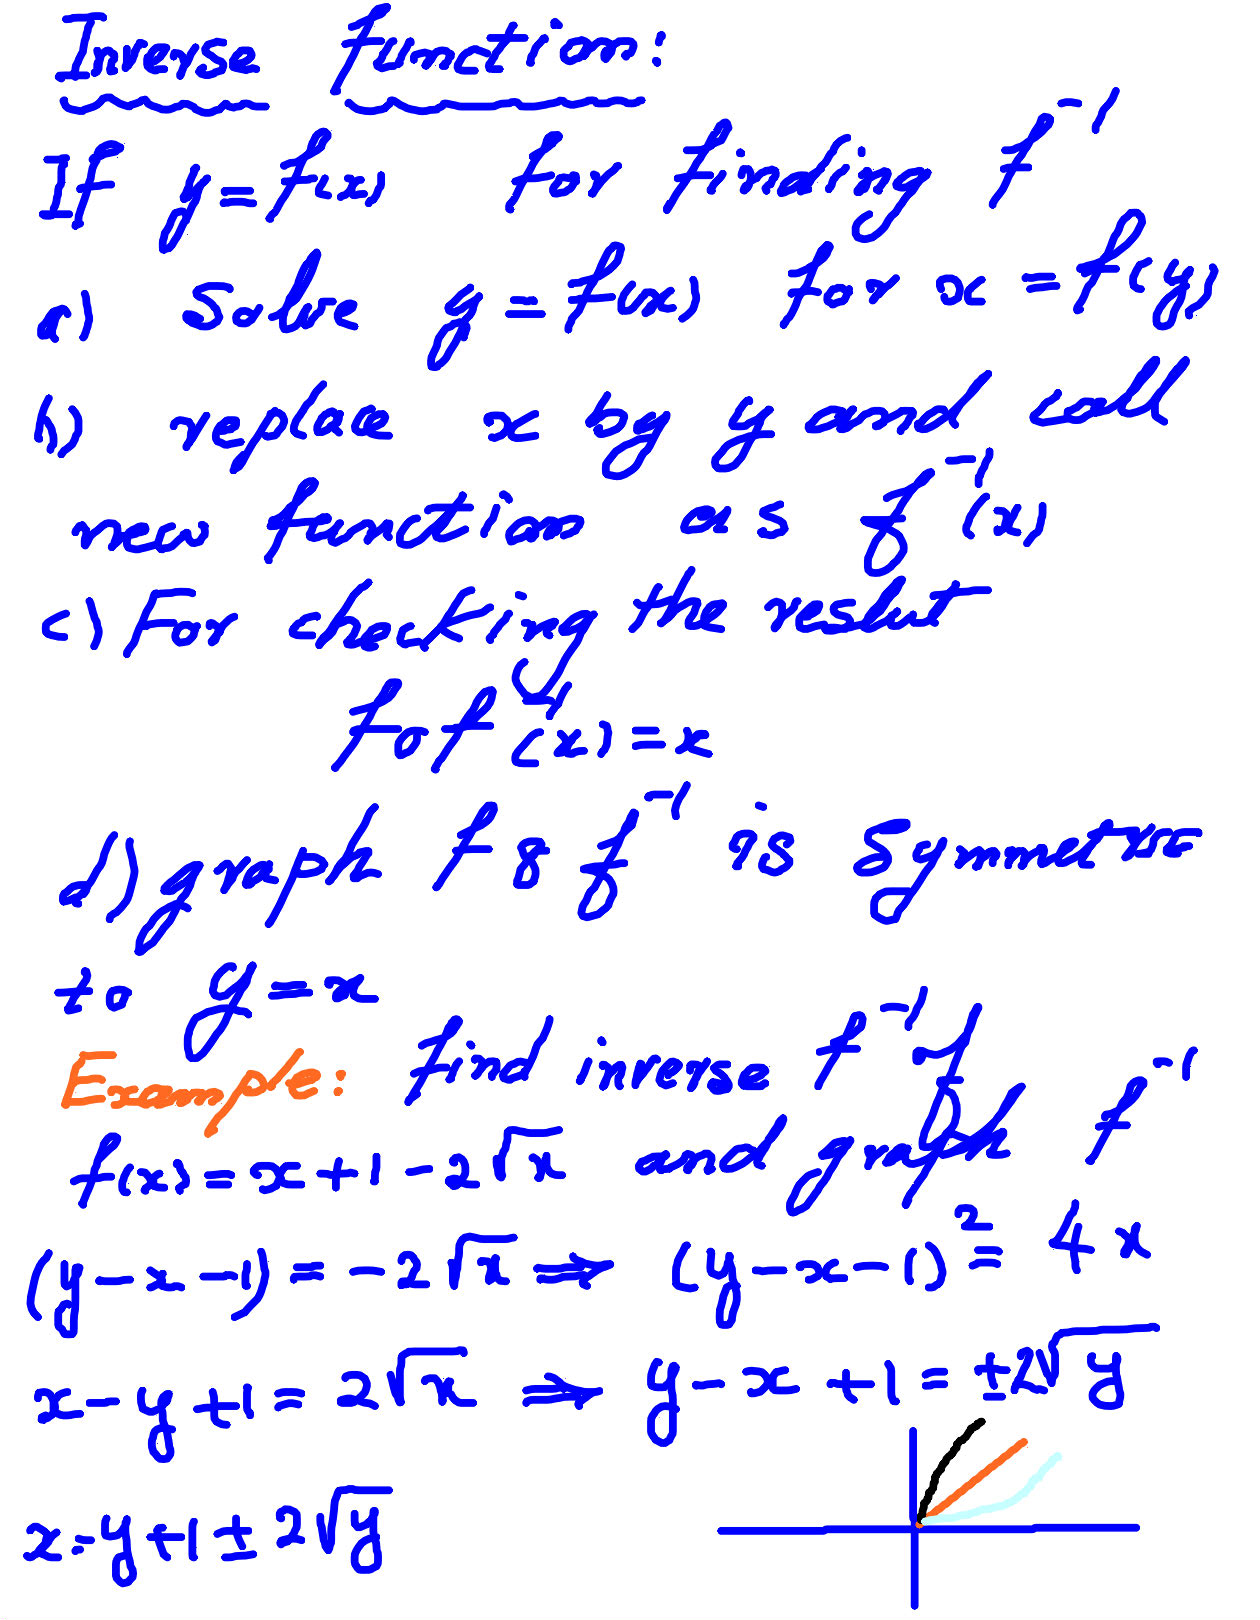 Inverse function:
If y = f(x) for finding f⁻¹
a) Solve y = f(x) for x = f(y)
b) replace x by y and call
new function as f⁻¹(x)
c) For checking the reslut
fof⁻¹(x) = x
d) graph f & f⁻¹ is symmetric
to y = x
Example: find inverse f⁻¹ of
f(x) = x + 1 - 2√x and graph f⁻¹
(y - x - 1) = -2√x ⇒ (y - x - 1)² = 4x
x - y + 1 = 2√x ⇒ y - x + 1 = ±2√y
x = y + 1 ± 2√y